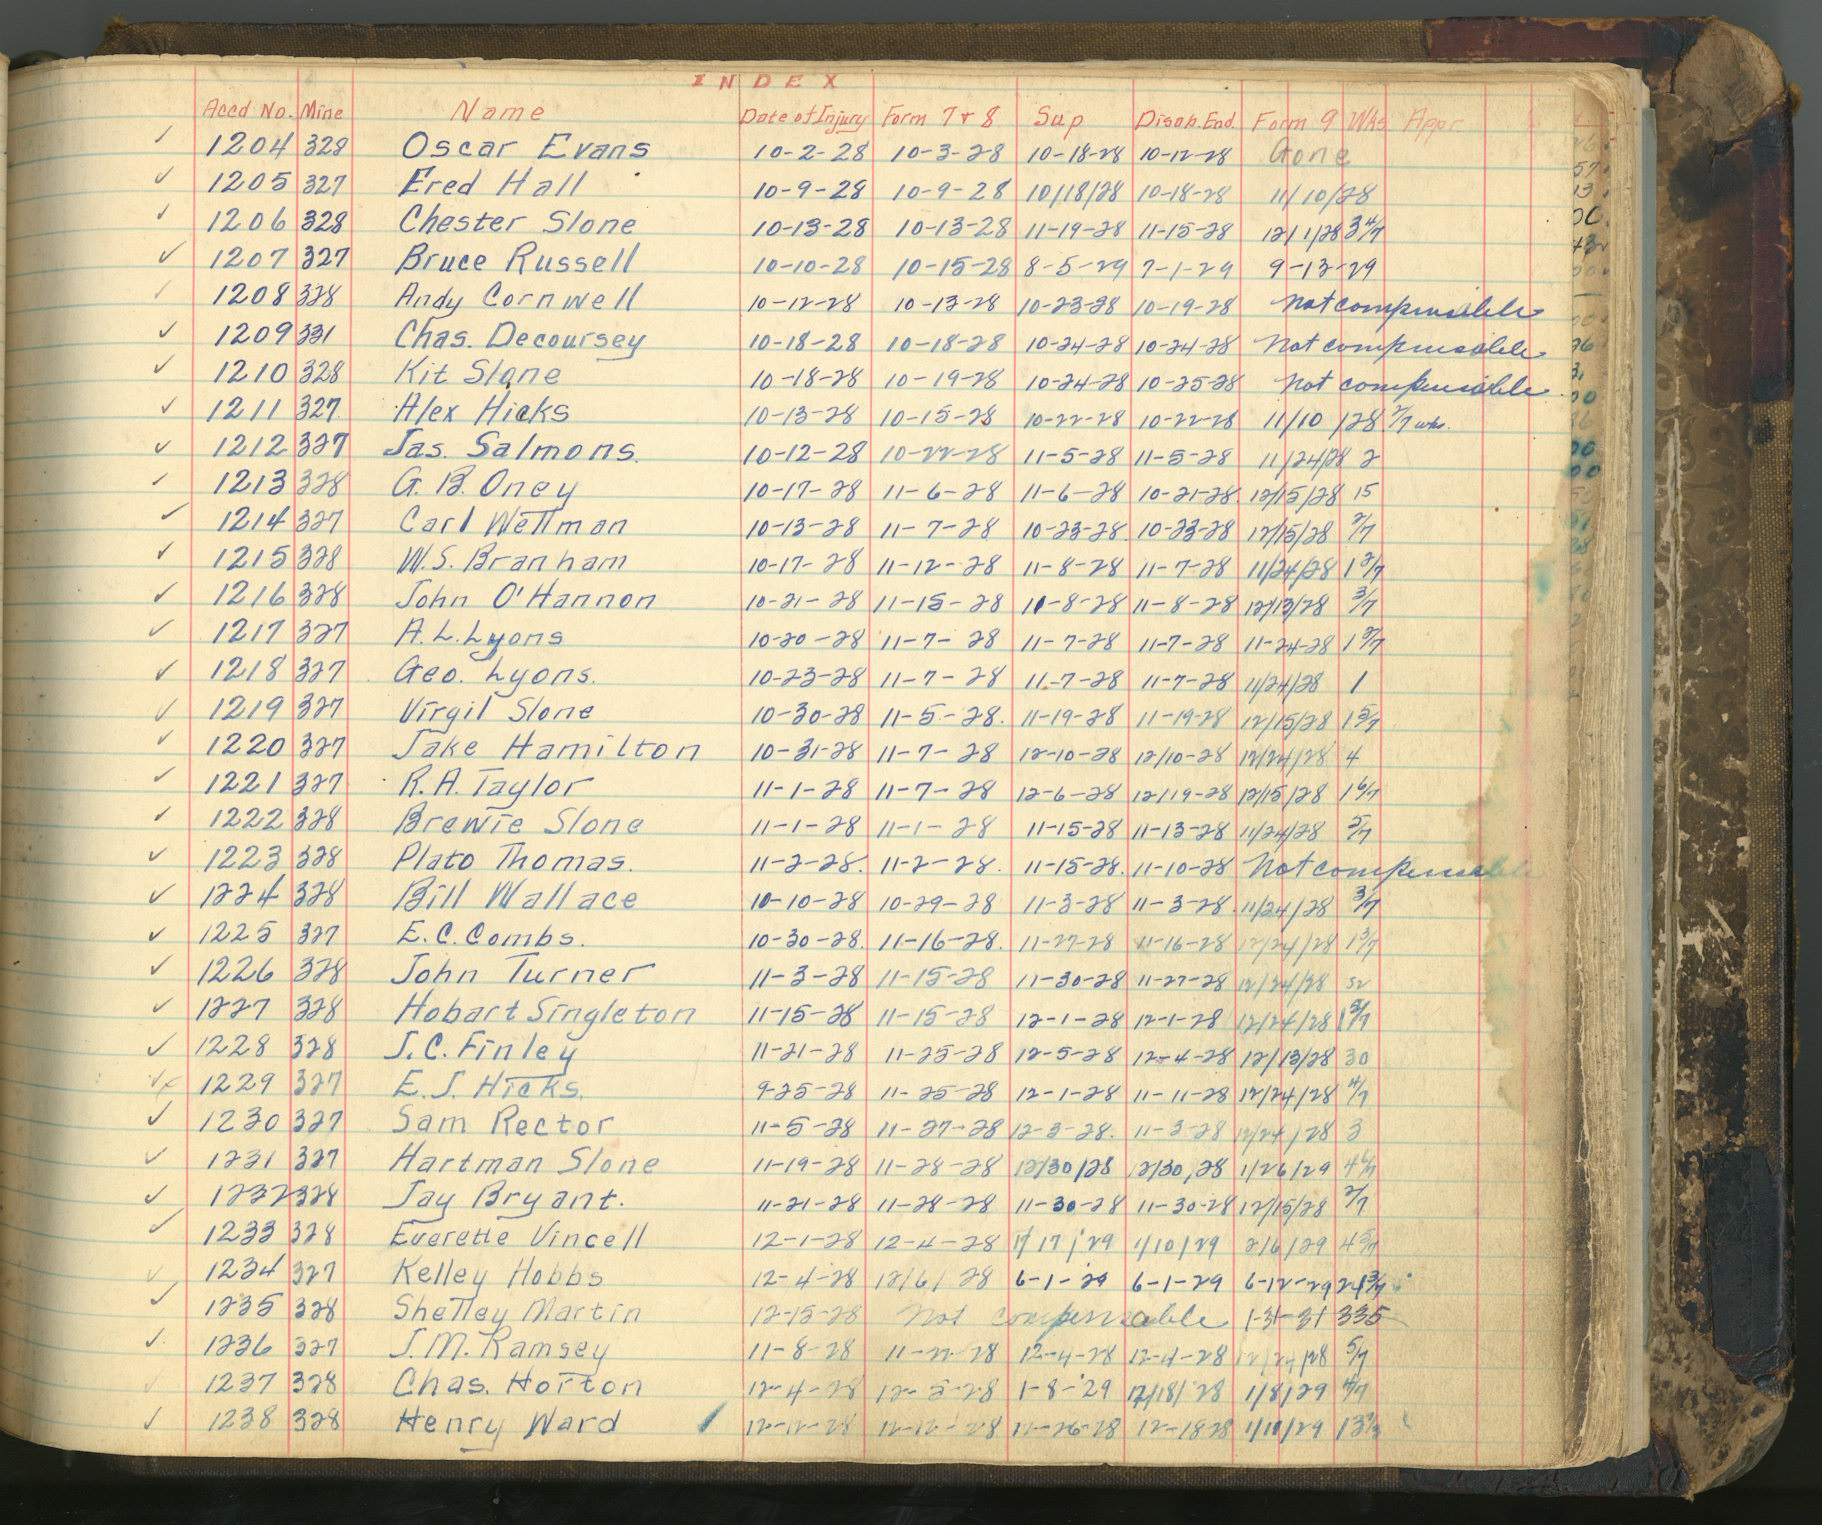 INDEX
Accd No. Mine Name Date of Injury Form 7 & 8 Sup Disab. End. Form 9 Wks Appr
1204 328 Oscar Evans 10-2-28 10-3-28 10-18-28 10-12-28 Gone
1205 327 Ered Hall 10-9-28 10-9-28 10/18/28 10-18-28 11/10/28
1206 328 Chester Slone 10-13-28 10-13-28 11-19-28 11-15-28 12/1/28 3 4/7
1207 327 Bruce Russell 10-10-28 10-15-28 8-5-29 7-1-29 9-13-29
1208 328 Andy Cornwell 10-12-28 10-13-28 10-23-28 10-19-28 not compensable
1209 331 Chas. Decoursey 10-18-28 10-18-28 10-24-28 10-24-28 Not compensable
1210 328 Kit Slone 10-18-28 10-19-28 10-24-28 10-25-28 not compensible
1211 327 Alex Hicks 10-13-28 10-15-28 10-22-28 10-22-28 11/10/28 2/7 wks.
1212 327 Jas. Salmons. 10-12-28 10-22-28 11-5-28 11-5-28 11/24/28 2
1213 328 G. B. Oney 10-17-28 11-6-28 11-6-28 10-21-28. 12/15/28 15
1214 327 Carl Wellman 10-13-28 11-7-28 10-23-28. 10-23-28 12/15/28 2/7
1215 328 W. S. Branham 10-17-28 11-12-28 11-8-28 11-7-28 11/24/28 1 2/7
1216 328 John O'Hannon 10-21-28 11-15-28 11-8-28 11-8-28 12/13/28 3/7
1217 327 A. L. Lyons 10-20-28 11-7-28 11-7-28 11-7-28 11-24-28 1 5/7
1218 327 Geo. Lyons. 10-23-28 11-7-28 11-7-28 11-7-28 11/24/28 1
1219 327 Virgil Slone 10-30-28 11-5-28. 11-19-28 11-19-28 12/15/28 1 5/7
1220 327 Jake Hamilton 10-31-28 11-7-28 12-10-28 12/10-28 12/24/28 4
1221 327 R. A. Taylor 11-1-28 11-7-28 12-6-28 12/19-28 12/15/28 1 6/7
1222 328 Brewie Slone 11-1-28 11-1-28 11-15-28 11-13-28 11/24/28 5/7
1223 328 Plato Thomas. 11-2-28. 11-2-28. 11-15-28. 11-10-28 Not compensable
1224 328 Bill Wallace 10-10-28 10-29-28 11-3-28 11-3-28. 11/24/28 3/7
1225 327 E. C. Combs. 10-30-28. 11-16-28. 11-27-28 11-16-28 12/24/28 1 3/7
1226 328 John Turner 11-3-28 11-15-28 11-30-28 11-27-28 12/24/28 52
1227 328 Hobart Singleton 11-15-28 11-15-28 12-1-28 12-1-28 12/24/28 1 3/7
1228 328 J. C. Finley 11-21-28 11-25-28 12-5-28 12-4-28 12/13/28 30
1229 327 E. J. Hicks. 9-25-28 11-25-28 12-1-28 11-11-28 12/24/28 4/7
1230 327 Sam Rector 11-5-28 11-27-28 12-3-28. 11-3-28 12/24/28 3
1231 327 Hartman Slone 11-19-28 11-28-28 12/30/28 12/30/28 1/26/29 4 6/7
1232 328 Jay Bryant. 11-21-28 11-28-28 11-30-28 11-30-28 12/15/28 2/7
1233 328 Everette Vincell 12-1-28 12-4-28 1/17/29 1/10/29 2/6/29 4 5/7
1234 327 Kelley Hobbs 12-4-28 12/6/28 6-1-29 6-1-29 6-12-29 24 3/7
1235 328 Shelley Martin 12-15-28 not compensable 1-31-31 335
1236 327 J. M. Ramsey 11-8-28 11-22-28 12-4-28 12-4-28 12/24/28 5/7
1237 328 Chas. Horton 12-4-28 12-5-28 1-8-29 12/18/28 1/8/29 4/7
1238 328 Henry Ward 12-12-28 12-12-28 12-26-28 12-18-28 1/11/29